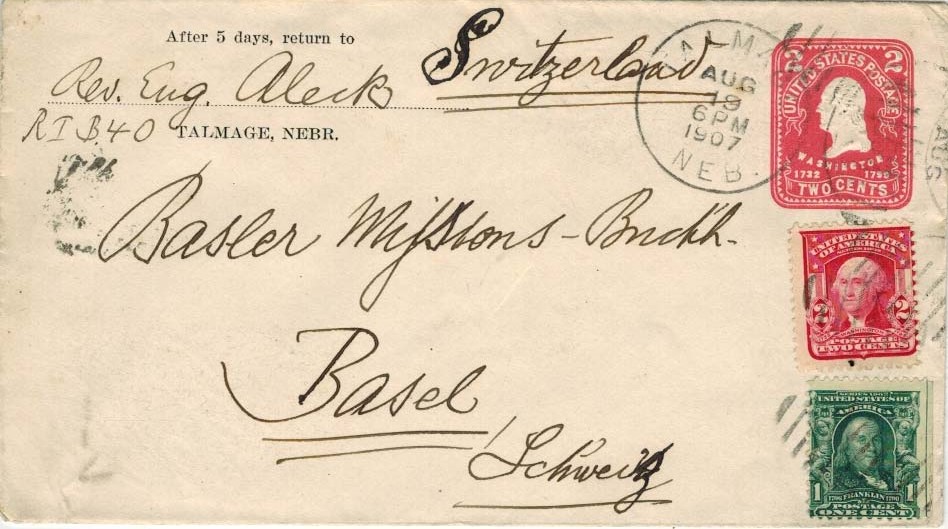 After 5 days, return to
Rev. Eng. Aleck
R I B 40 TALMAGE, NEBR.
Switzerland
TALMAGE
AUG
19
6 PM
1907
NEB.
2 2
UNITED STATES POSTAGE
WASHINGTON
1732 1799
TWO CENTS
Basler Missions-Buchh.
Basel
Schweiz
UNITED STATES
OF AMERICA
2 2
WASHINGTON
POSTAGE
TWO CENTS
SERIES 1902
UNITED STATES OF
AMERICA
1 1706 FRANKLIN 1790 1
POSTAGE
ONE CENT
AUG